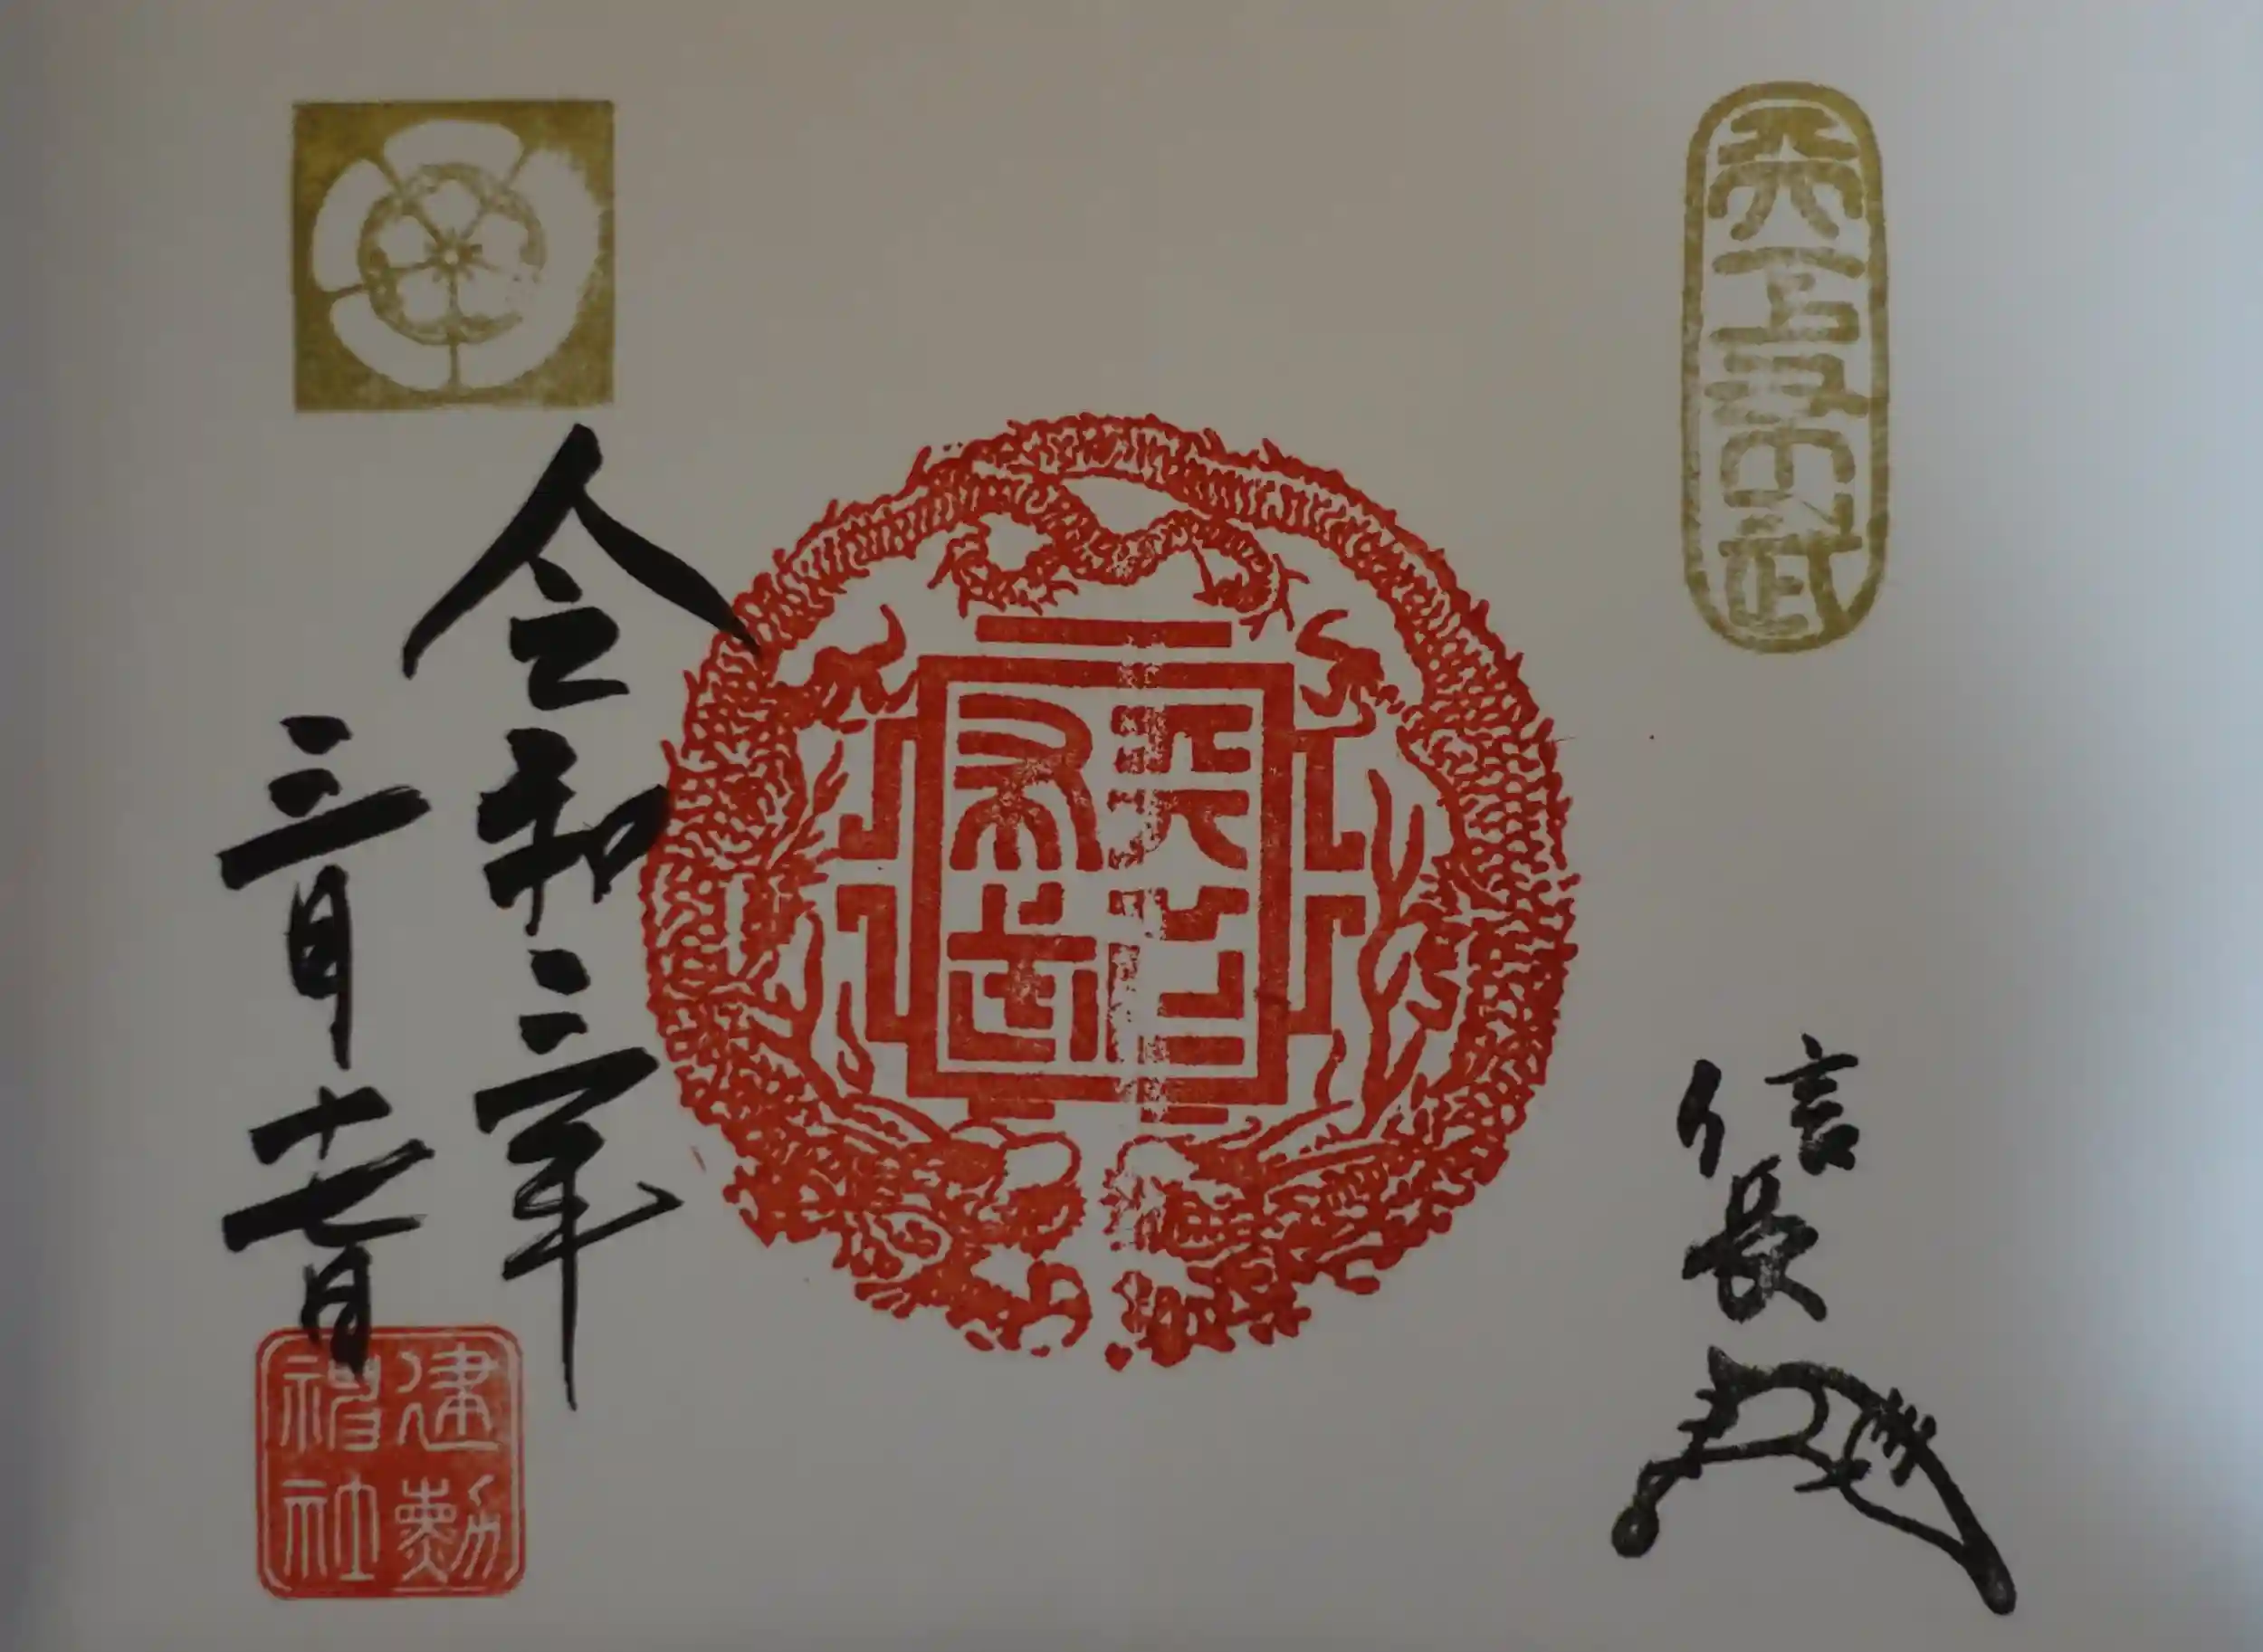 天下布武
信長
天下布武
令和三年
三月十七日
建勲
神社